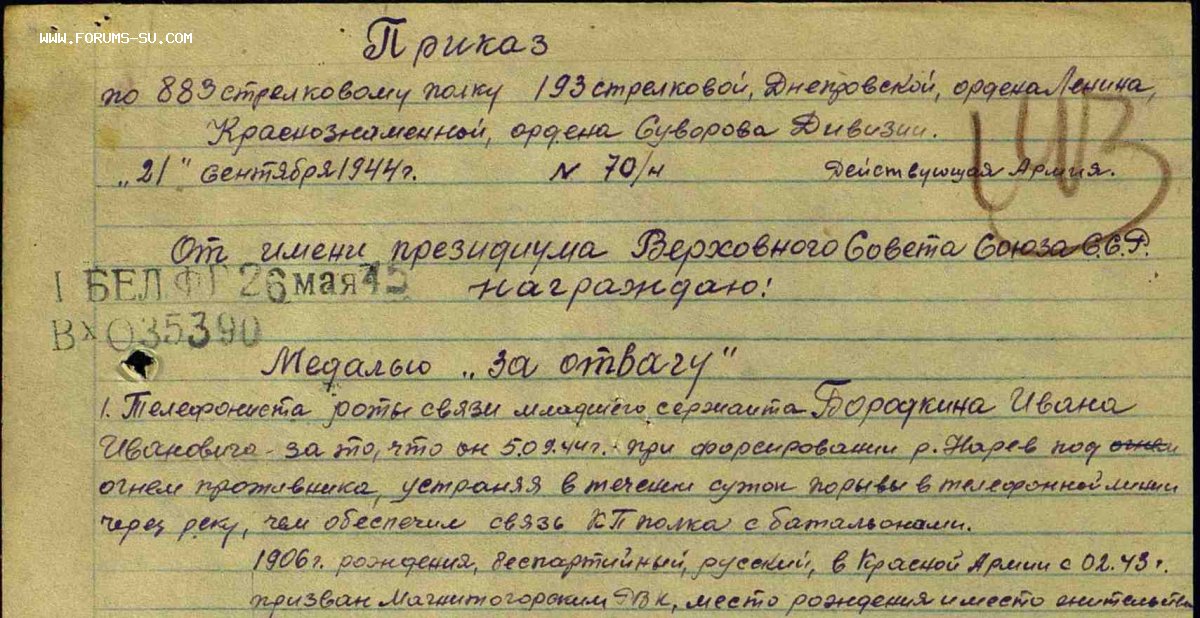 WWW.FORUMS-SU.COM
Приказ
по 883 стрелковому полку 193 стрелковой, Днепровской, ордена Ленина,
Краснознаменной, ордена Суворова Дивизии.
„21" сентября 1944 г. N 70/н Действующая Армия.
От имени президиума Верховного Совета Союза С.С.Р.
награждаю:
I БЕЛ ФР 26 мая 45
Вх 035390
Медалью „за отвагу"
1. Телефониста роты связи младшего сержанта Бородкина Ивана
Ивановича - за то, что он 5.09.44 г. при форсировании р. Нарев под огнем
огнем противника, устраняя в течении суток порывы в телефонной линии
через реку, чем обеспечил связь КП полка с батальонами.
1906 г. рождения, беспартийный, русский, в Красной Армии с 02.43 г.
призван Магнитогорским РВК, место рождения и место жительства